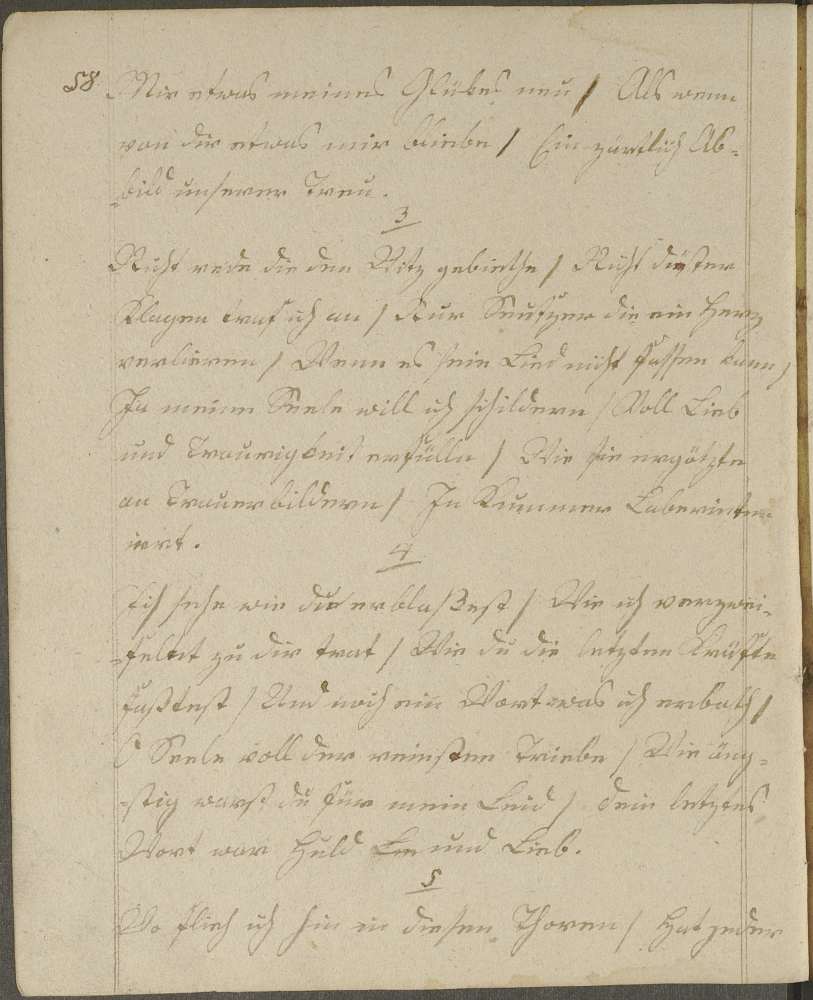 58. Mir etwas meines Glükes neu / Als wenn
von dir etwas mir bliebe / Ein zärtlich Ab-
-bild unserer Treu.
3
Nicht rede die den Witz gebiethe / Nicht düster
Klagen traf ich an / Nur Seufzer die ein Herz
verlieren / Wenn es sein Lied nicht fassen kann /
Ja meine Seele will ich schildern / Voll Lieb
und Traurigkeit erfülln / Wie sie ergötzte
an Trauerbildern / In Kummer Laberinten
irrt.
4
Ich sehe wie du erblaßest / Wie ich verzwei-
-felnt zu dir trat / Wie du die letzten Kräfte
faßtest / Und noch ein Wort was ich erbath /
O Seele voll der reinsten Triebe / Wie äng-
-stig warst du für mein Leid / dein letztes
Wort war Huld und Lieb.
5
Wo flieh ich hin in diesen Thoren / hat jeder